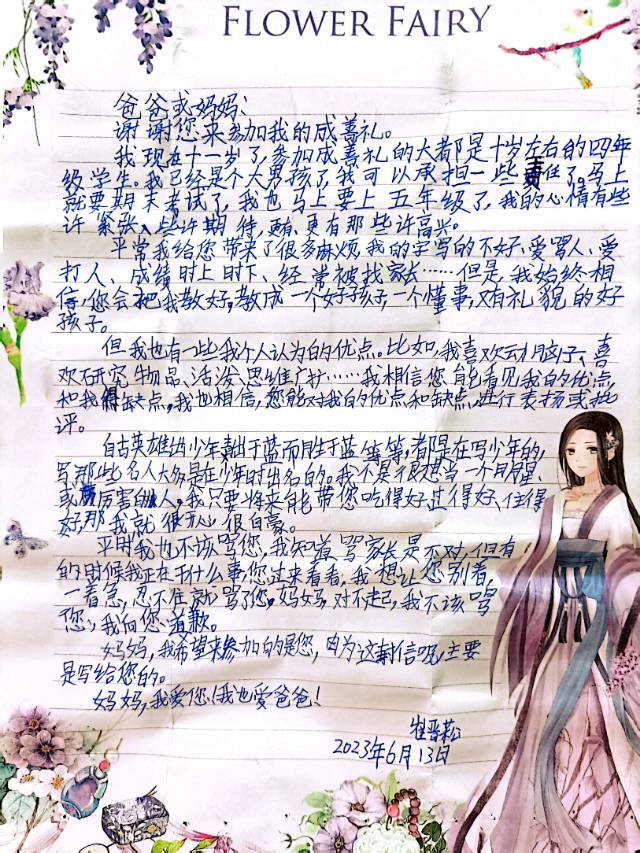 FLOWER FAIRY
爸爸或妈妈:
谢谢您来参加我的成善礼。
我现在十一岁了,参加成善礼的大都是十岁左右的四年
级学生。我已经是个大男孩了,我可以承担一些责任了。马上
就要期末考试了,我也马上要上五年级了,我的心情有些
许紧张、些许期待,更有那些许高兴。
平常我给您带来了很多麻烦,我的字写的不好、爱骂人、爱
打人、成绩时上时下、经常被找家长……但是,我始终相
信,您会把我教好,教成一个好孩子,一个懂事,又有礼貌的好
孩子。
但我也有一些我个人认为的优点。比如,我喜欢动脑子、喜
欢研究物品、活泼、思维广……我相信您能看见我的优点
和我缺点,我也相信,您能对我的优点和缺点进行表扬或批
评。
自古英雄出少年、青出于蓝而胜于蓝等等,都是在写少年的,
写那些名人大多是在少年时出名的。我不是很想当一个明星、
或厉害的人,我只要将来能带您吃得好、过得好、住得
好,那我就很开心、很自豪。
平时我也不该骂您,我知道骂家长是不对,但有
的时候我正在干什么事,您过来看看,我想让您别看,
一着急,忍不住就骂了您,妈妈,对不起,我不该骂
您,我向您道歉。
妈妈,我希望来参加的是您,因为这封信呢,主要
是写给您的。
妈妈,我爱您!(我也爱爸爸!
崔晋菘
2023年6月13日